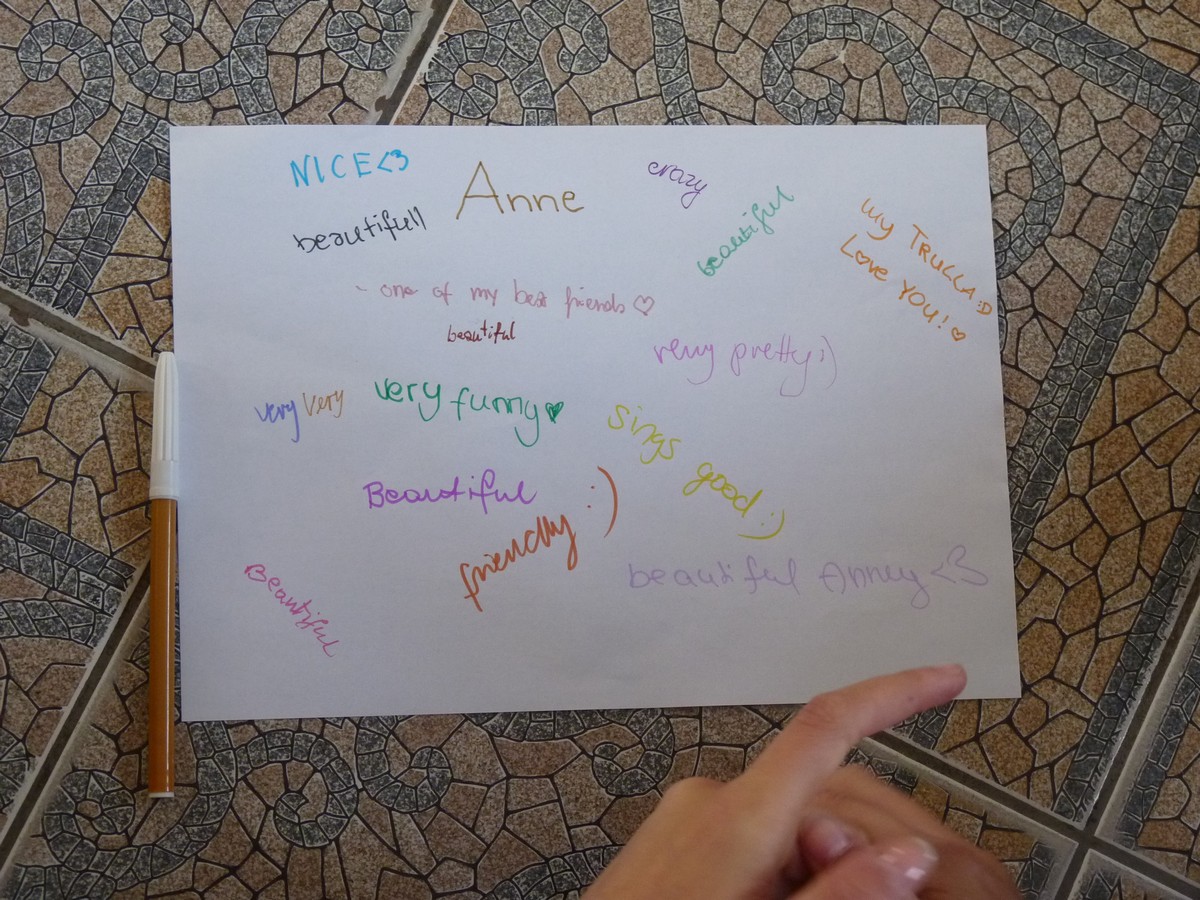 NICE<3
Anne
crazy
beautifull
beautiful
my TRULLA :D
LOVE YOU! ♡
- one of my best friends ♡
beautiful
very pretty :)
very very
very funny ♥
sings good :)
Beautiful
friendly :)
beautiful Anney <3
Beautiful